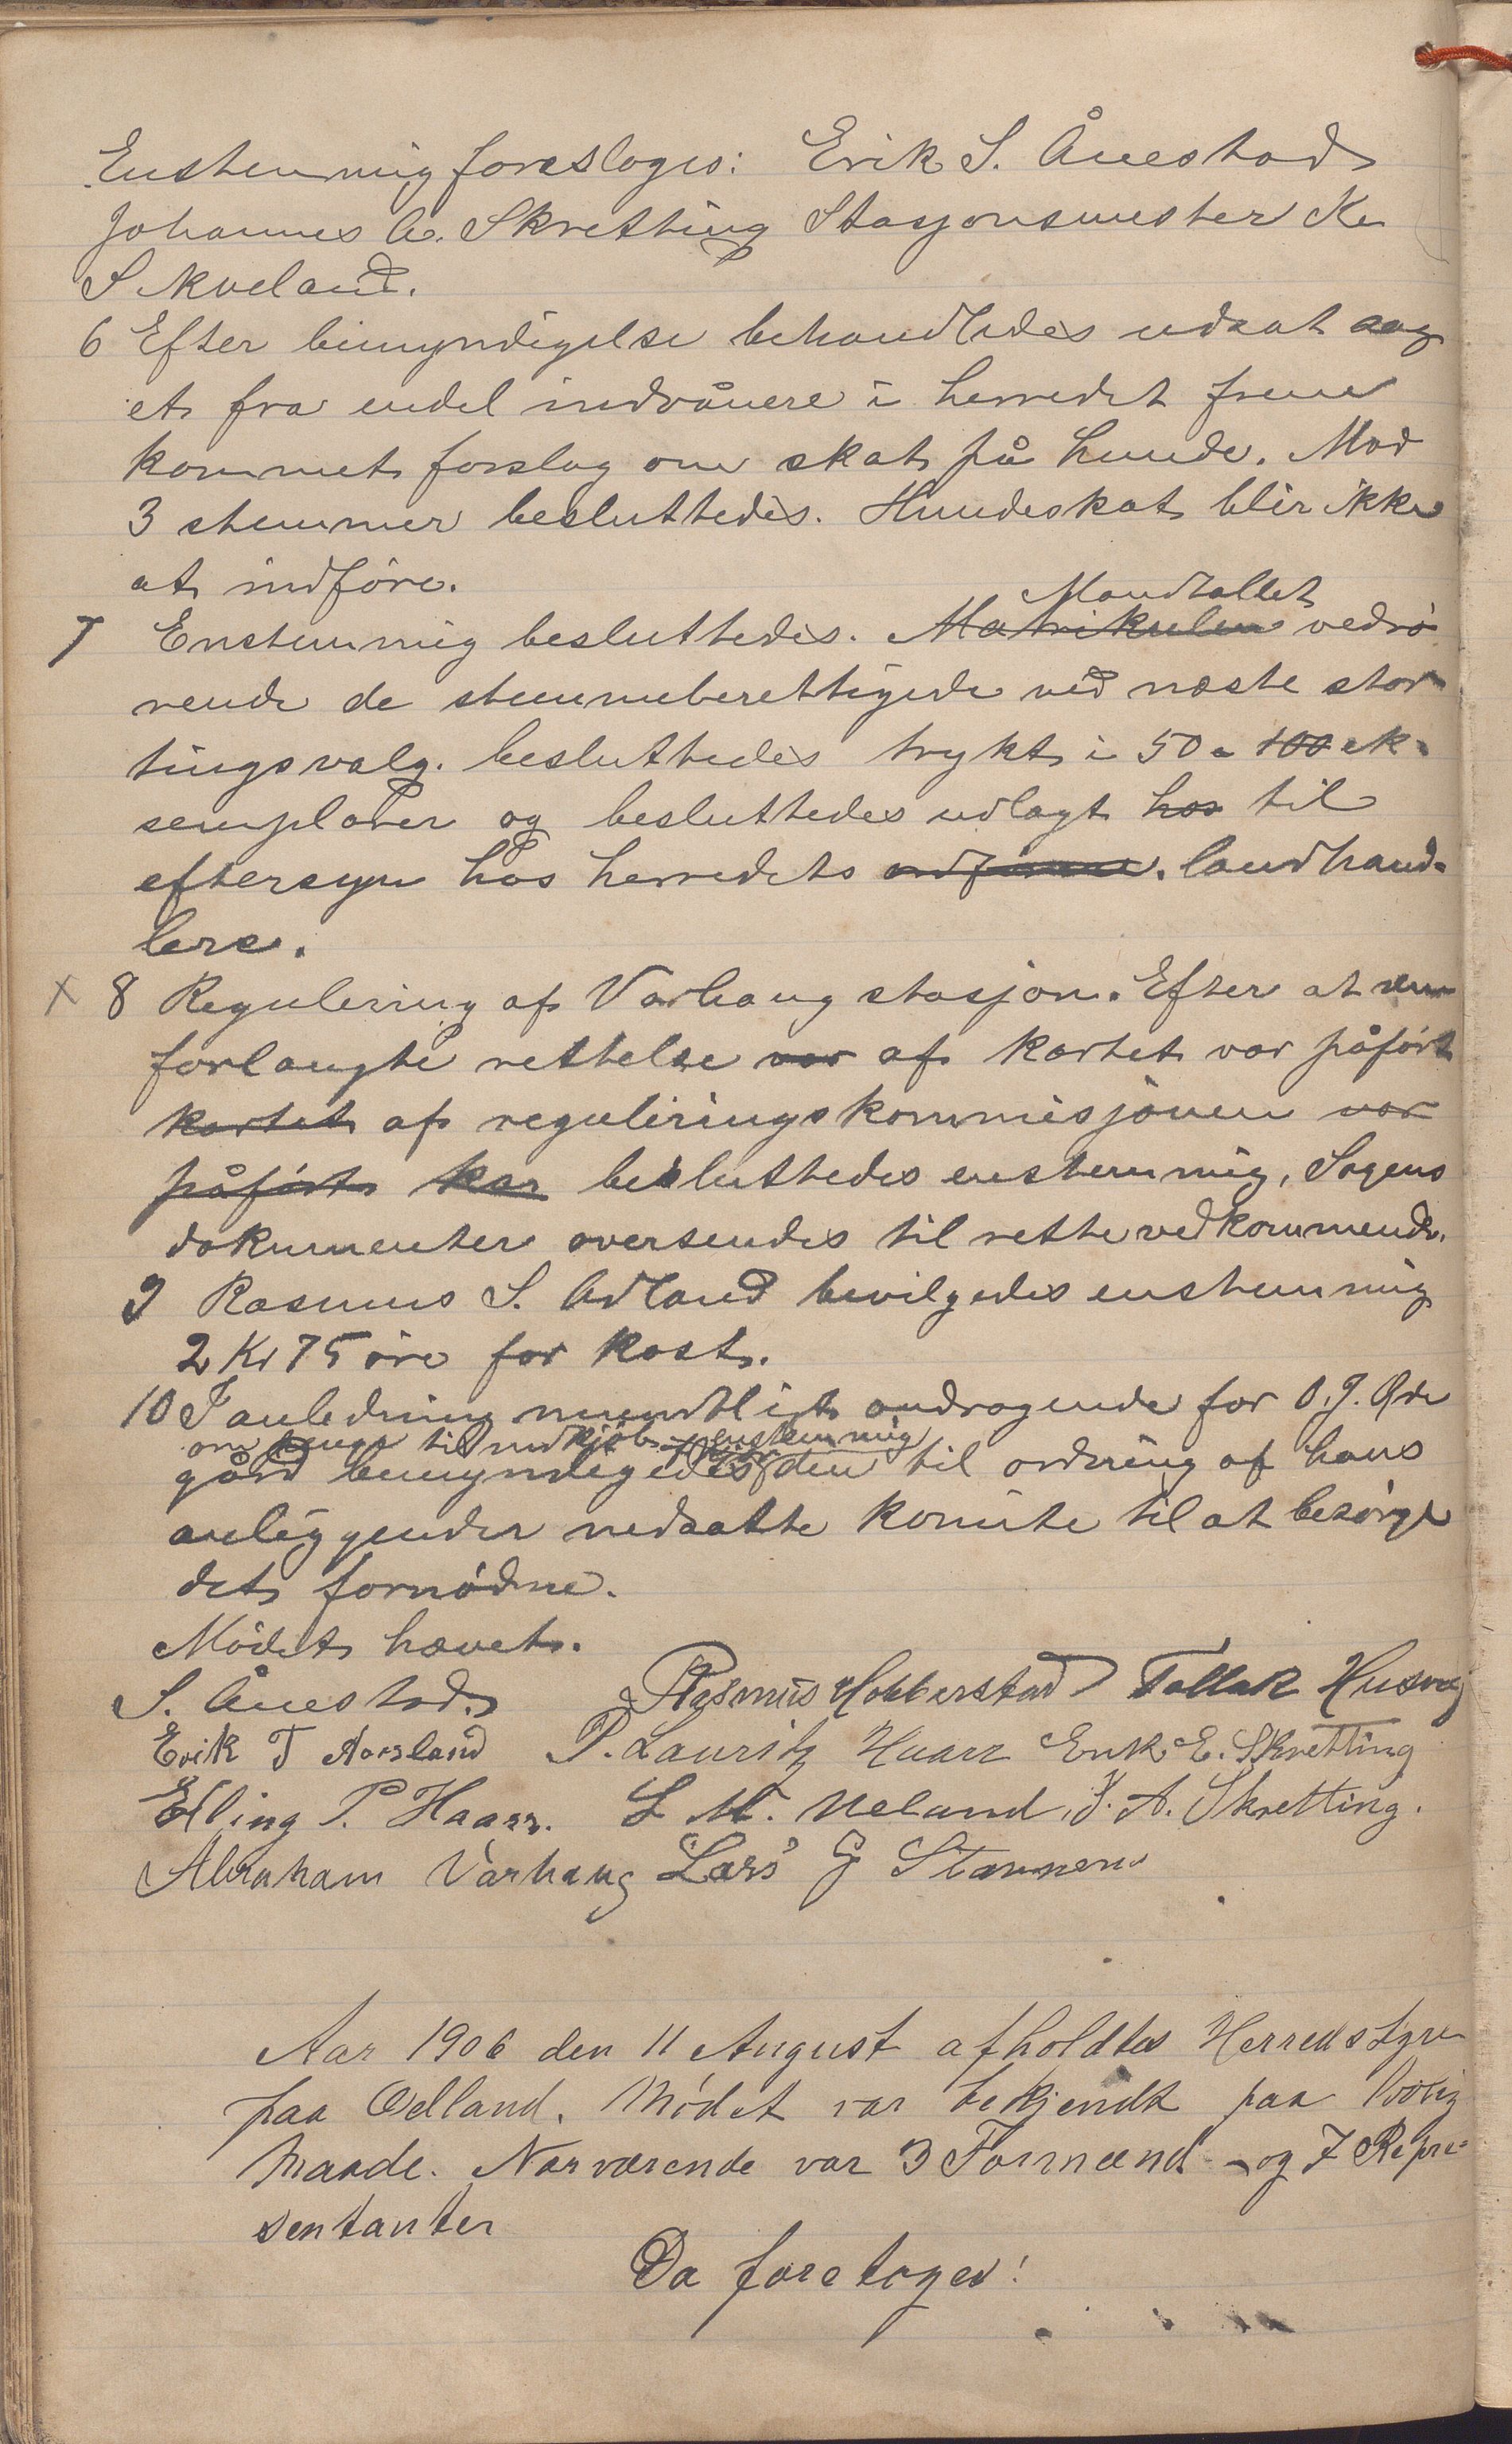 Enstemmig foresloges: Erik S. Ånestad
Johannes A. Skretting Stasjonsmester K.
S. Kveland.
6 Efter bemyndigelse behandledes udsat sag
et fra endel indvånere i herredet frem
kommet forslag om skat på hunde. Mod
3 stemmer besluttedes. Hundeskat blir ikke
at indføre.
Mandtallet
7 Enstemmig besluttedes. Matrikulen vedrø
rende de stemmeberettigede ved næste stor
tingsvalg. besluttedes trykt i 50 a 100 ek-
semplarer og besluttedes udlagt hos til
eftersyn hos herredets landhand-
lere.
x 8 Regulering af Varhaug stasjon. Efter at den
forlangte rettelse var af kartet var påført
kartet af reguleringskommisjonen var
påført kar besluttedes enstemmig, Sagens
dokumenter oversendes til rette vedkommende.
9 Rasmus S. Ødland bevilgedes enstemmig
2 Kr 75 øre for kost.
10 I anledning mundtligt andragende for O. J. Øde
om penge til indkjøb enstemmig
gård bemyndigedes den til ordning af hans
anliggender nedsatte komite til at besørge
det fornødne.
Mødet hævet.
S. Ånestad. Rasmus Hobberstad Tollak Husveg
Erik T Aarsland P. Lauritz Haarr Erik E. Skretting
Elling P. Haarr. L M. Ueland, J. A. Skretting.
Abraham Varhaug Lars G Stavnem
Aar 1906 den 11 August afholdtes Herredstyre
paa Ødland. Mødet var bekjendt paa lovlig
Maade. Nærværende var 3 Formænd og 7 Repre-
sentanter
Da foretoges!